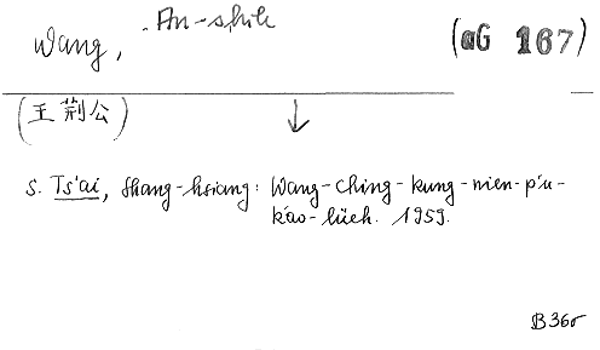 Wang, An-shih (aG 167)
(王荆公) ↓
s. Ts'ai, Shang-hsiang: Wang-ching-kung-nien-p'u-
k'ao-lüeh. 1959.
B 360